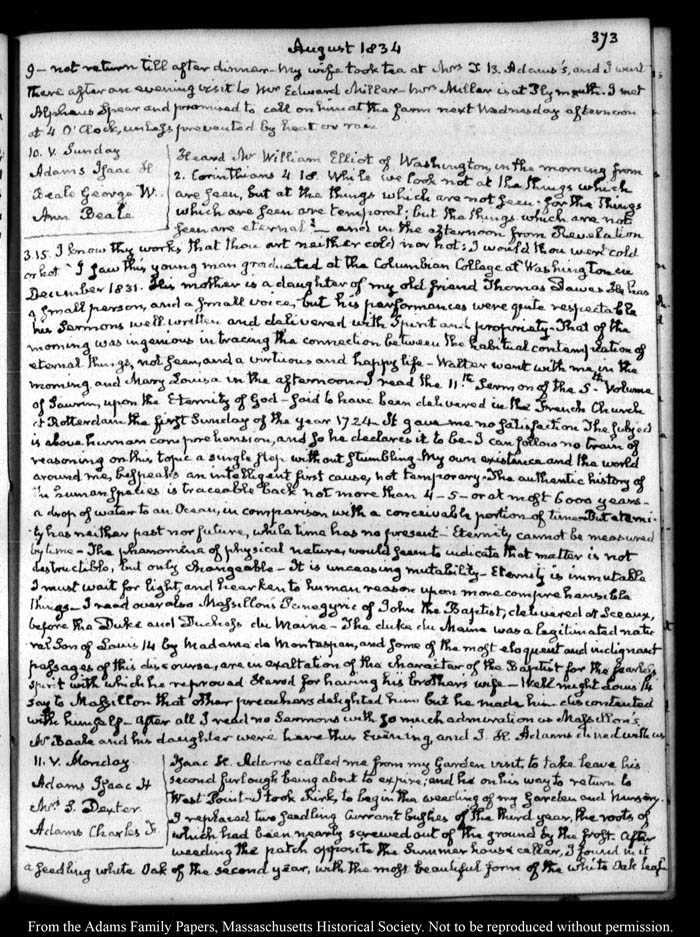 August 1834
373
I - not return till after dinner - My wife took tea at Mrs T. B. Adams's, and I went
there after an evening visit to Mr Edward Miller - Mrs Miller is at Plymouth. I met
Alpheus Spear and promised to call on him at the farm next Wednesday afternoon
at 4 O'Clock, unless prevented by heat or rain
10. V. Sunday
Adams Isaac H
Beale George W.
Ann Beale
Heard Mr William Elliot of Washington, in the morning from
2. Corinthians 4 18. While we look not at the things which
are seen, but at the things which are not seen: for the things
which are seen are temporal; but the things which are not
seen are eternal - and in the afternoon from Revelation
3.15. I know thy works that thou art neither cold nor hot: I would thou wert cold
or hot I saw this young man graduated at the Columbian College at Washington in
December 1831. His mother is a daughter of my old friend Thomas Dawes He has
a small person, and a small voice, but his performances were quite respectable
his Sermons well written and delivered with Spirit and propriety - That of the
morning was ingenious in tracing the connection between the habitual contemplation of
eternal things, not seen, and a virtuous and happy life - Walter went with me in the
morning and Mary Louisa in the afternoon - I read the 11th Sermon of the 5th Volume
of Saurin, upon the Eternity of God - said to have been delivered in the French Church
at Rotterdam the first Sunday of the year 1724 - It gave me no satisfaction The subject
is above human comprehension, and so he declares it to be - I can follow no train of
reasoning on this topic a single step without stumbling. My own existence and the world
around me, bespeaks an intelligent first cause, not temporary. The authentic history of
the human species is traceable back not more than 4 - 5 - or at most 6000 years -
a drop of water to an Ocean, in comparison with a conceivable portion of time - But eterni-
ty has neither past nor future, while time has no present - Eternity cannot be measured
by time - The phenomena of physical nature, would seem to indicate that matter is not
destructible, but only changeable - It is unceasing mutability - Eternity is immutable
I must wait for light, and hearken to human reason upon more comprehensible
things - I read over also Massillon's Panegyric of John the Baptist, delivered at Sceaux,
before the Duke and Duchess du Maine - The duke du Maine was a legitimated natu-
ral Son of Louis 14 by Madame de Montespan, and some of the most eloquent and indignant
passages of this discourse, are in exaltation of the character of the Baptist for the fearless
spirit with which he reproved Herod for having his brother's wife - Well might Louis 14
say to Massillon that other preachers delighted him but he made him discontented
with himself - After all I read no Sermons with so much admiration as Massillon's
Mr Beale and his daughter were here this Evening, and I. H. Adams dined with us
11. V. Monday
Adams Isaac H
Mrs S. Dexter
Adams Charles F.
Isaac H. Adams called me from my Garden visit, to take leave his
second furlough being about to expire; and he on his way to return to
West Point - I took Kirk, to begin the weeding of my Garden and Nursery.
I replaced two seedling Currant bushes of the third year, the roots of
which had been nearly screwed out of the ground by the frost. After
weeding the patch opposite the Summer house cellar, I found in it
a seedling white Oak of the second year, with the most beautiful form of the white Oak leaf
From the Adams Family Papers, Massachusetts Historical Society. Not to be reproduced without permission.